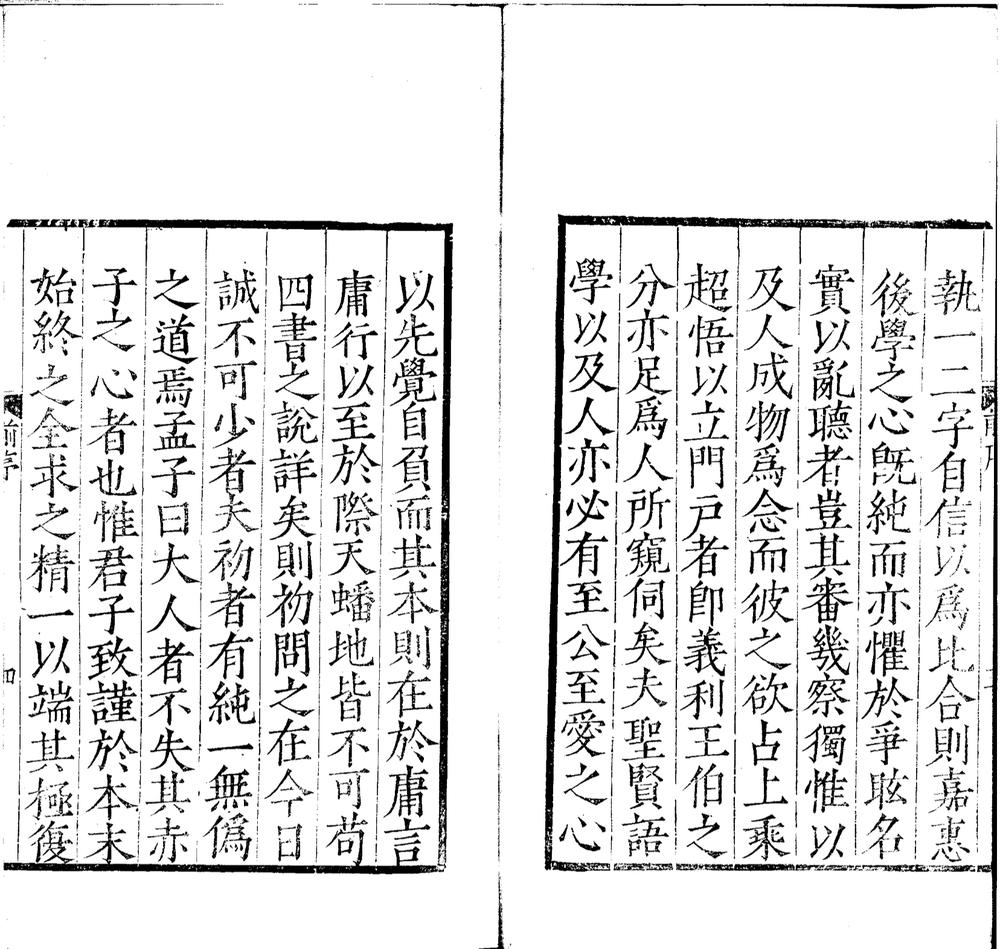 執一二字自信以爲比合則嘉惠
後學之心旣純而亦懼於爭眩名
實以亂聽者豈其審幾察獨惟以
及人成物爲念而彼之欲占上乘
超悟以立門戸者卽義利王伯之
分亦足爲人所窺伺矣夫聖賢語
學以及人亦必有至公至愛之心
以先覺自負而其本則在於庸言
庸行以至於際天蟠地皆不可苟
四書之説詳矣則初問之在今日
誠不可少者夫初者有純一無僞
之道焉孟子曰大人者不失其赤
子之心者也惟君子致謹於本末
始終之全求之精一以端其極復
前序
四